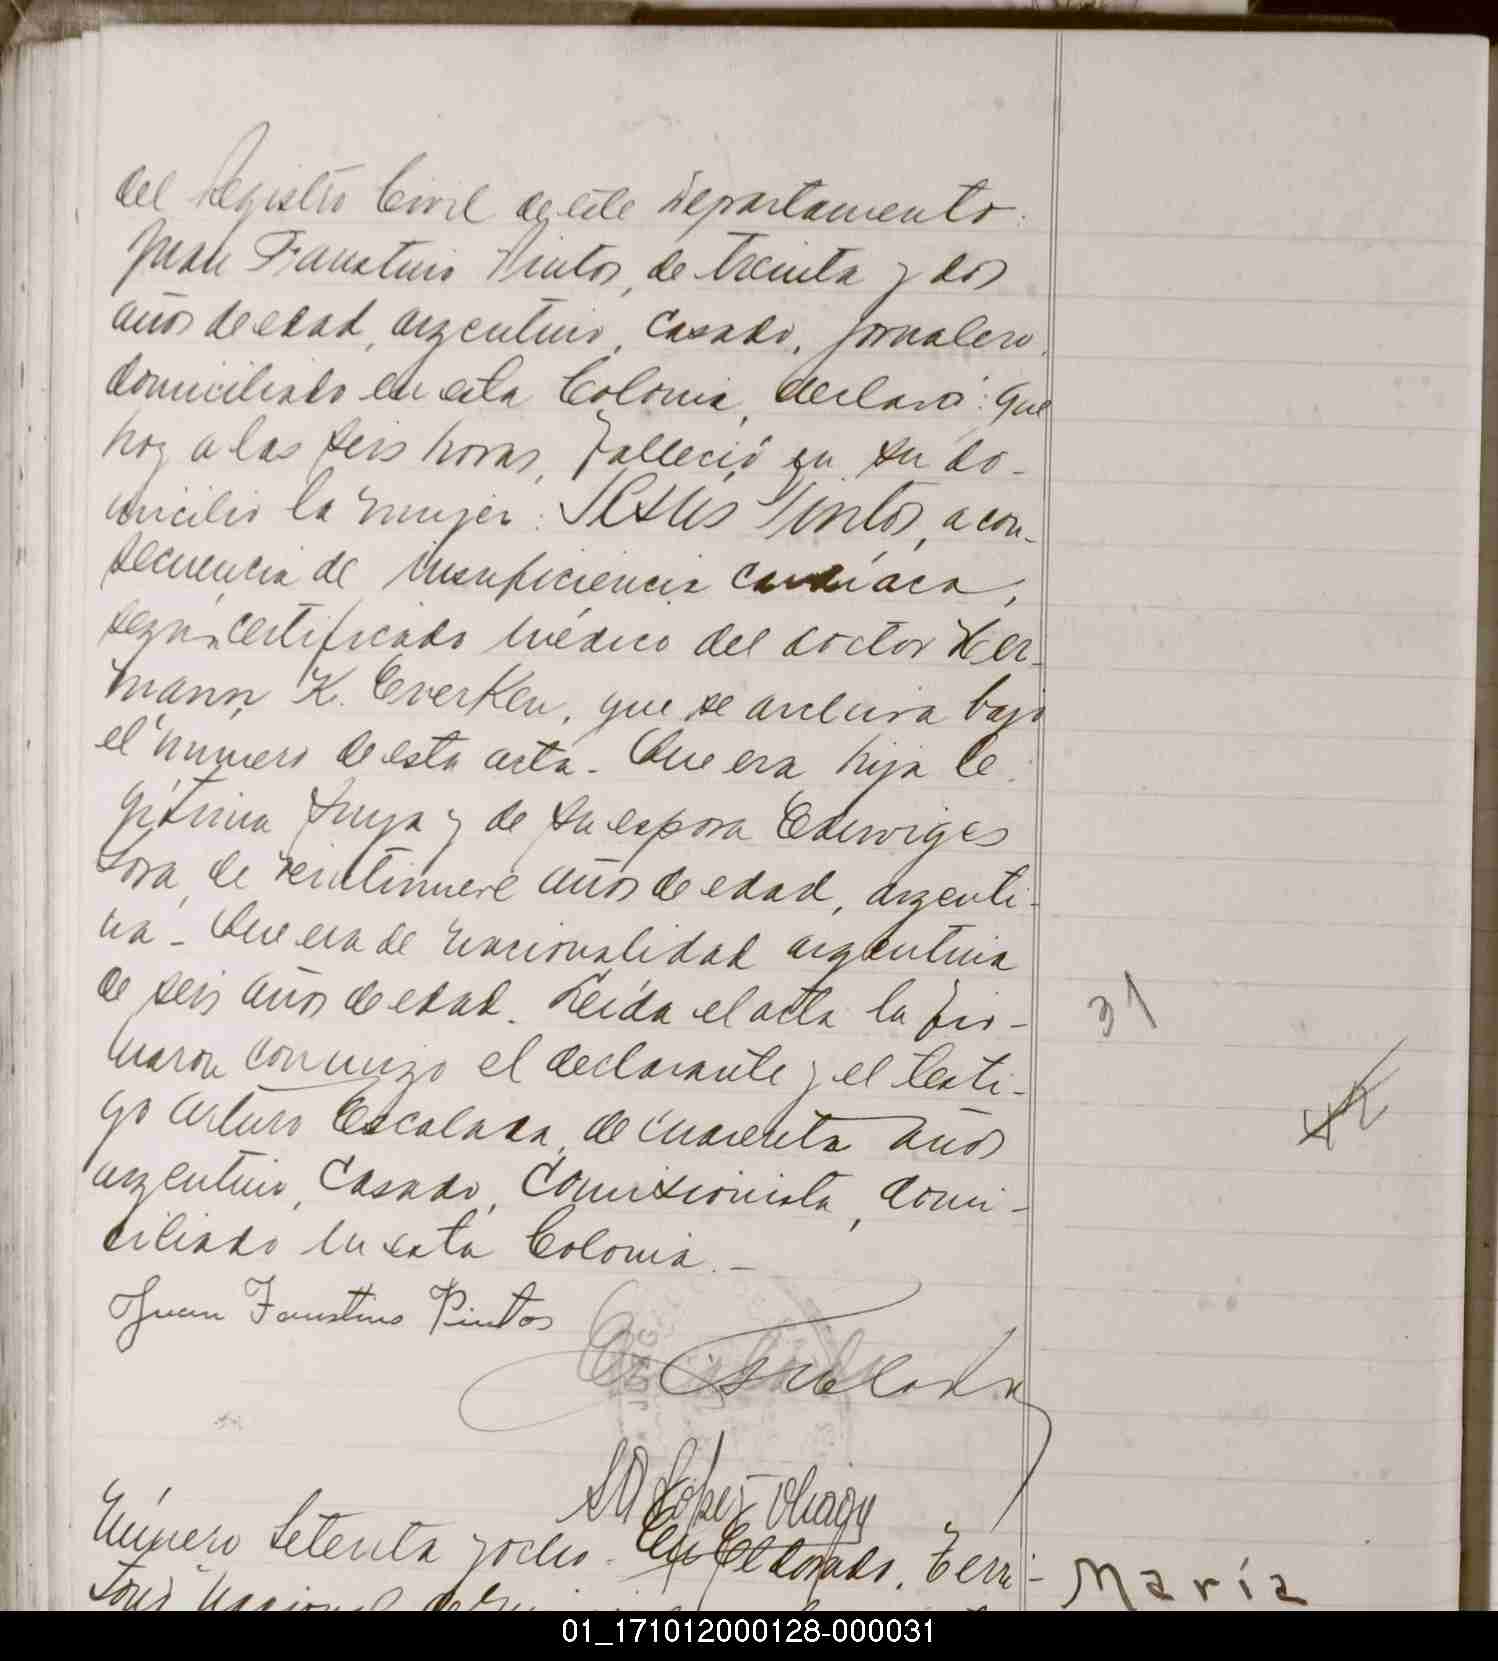 del Registro Civil de este Departamento:
Juan Faustino Pintos, de treinta y dos
años de edad, argentino, casado, jornalero,
domiciliado en esta Colonia, declaró: que
hoy a las seis horas, falleció en su do-
micilio la mujer: Jesús Pintos, a con-
secuencia de insuficiencia cardíaca,
según certificado médico del doctor Her-
mann K. Everken, que se archiva bajo
el número de esta acta. Que era hija le-
gítima suya y de su esposa Eduviges
Sosa, de veintinueve años de edad, argenti-
na - Que era de nacionalidad argentina
de seis años de edad. Leída el acta la fir-
maron conmigo el declarante y el testi-
go Arturo Escalada, de cuarenta años
argentino, casado, comisionista, domi-
ciliado en esta Colonia. -
Juan Faustino Pintos
Escalada
31
Número Setenta y ocho. En Eldorado, Terri-
torio Nacional de
María
01_171012000128-000031